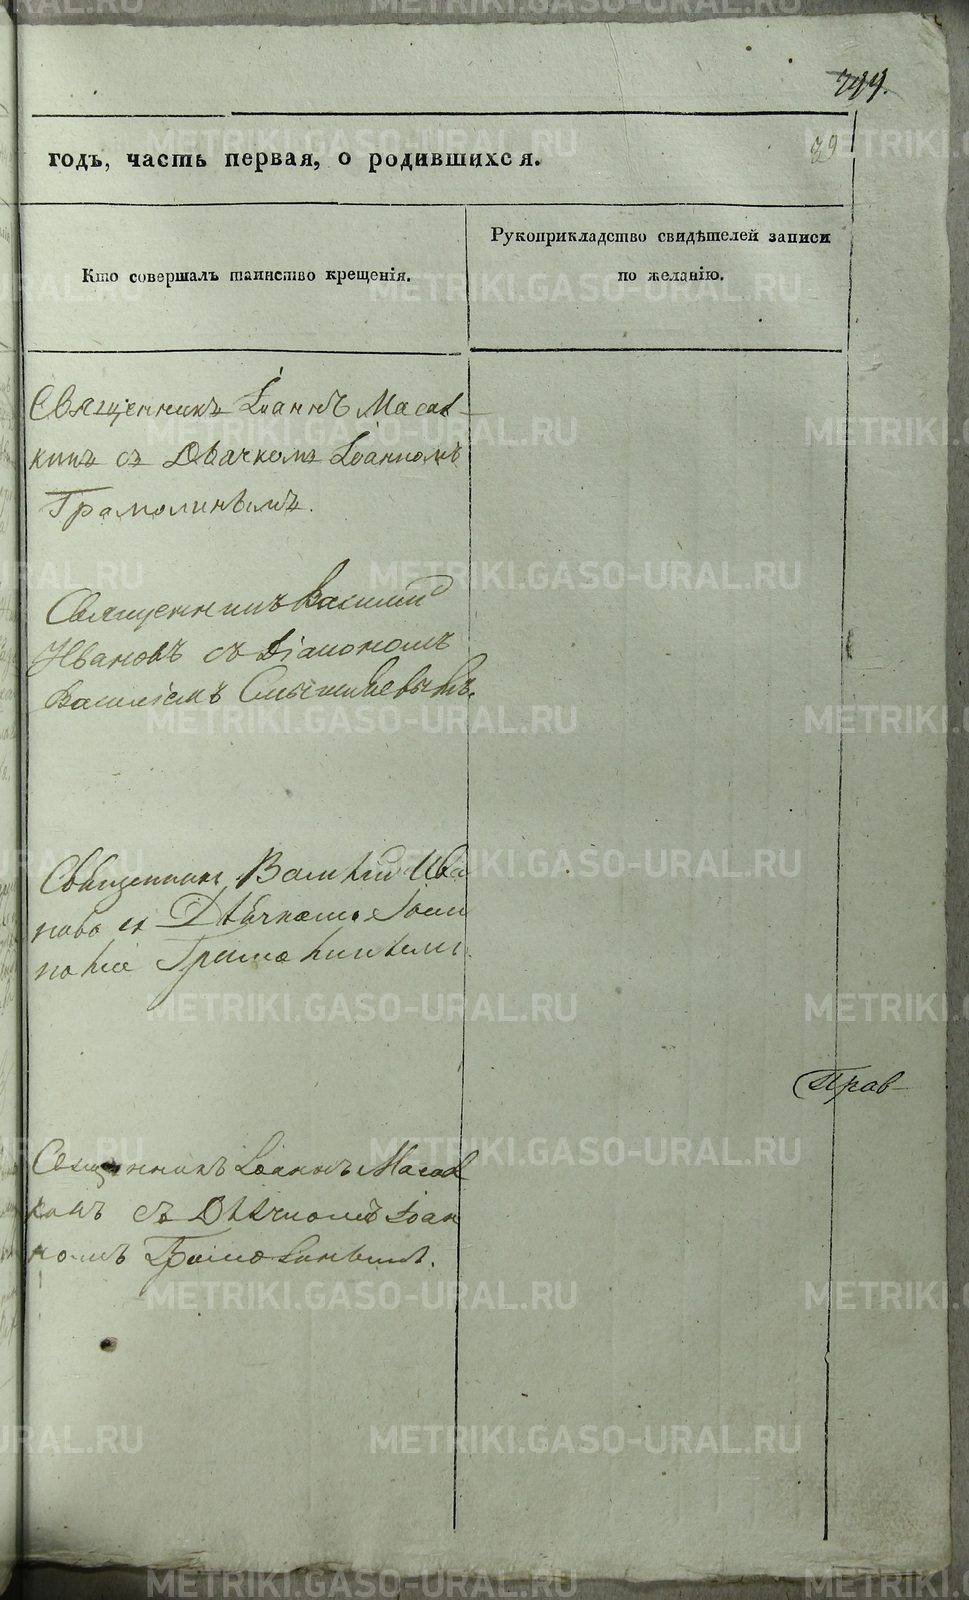 799.
29
годъ, часть первая, о родившихся.
Кто совершалъ таинство крещенія.
Рукоприкладство свидѣтелей записи
по желанію.
Священникъ Іоаннъ Масал-
кинъ съ Дьячкомъ Іоанномъ
Грамолинымъ.
Священникъ Василий
Ивановъ съ Діакономъ
Василіемъ
Священникъ Василий Ива
новъ съ Дьячкомъ Іоан
номъ
Прав-
Священникъ Іоаннъ Масал
кинъ съ Дьячкомъ Іоан
номъ Грамолинымъ.
METRIKI.GASO-URAL.RU